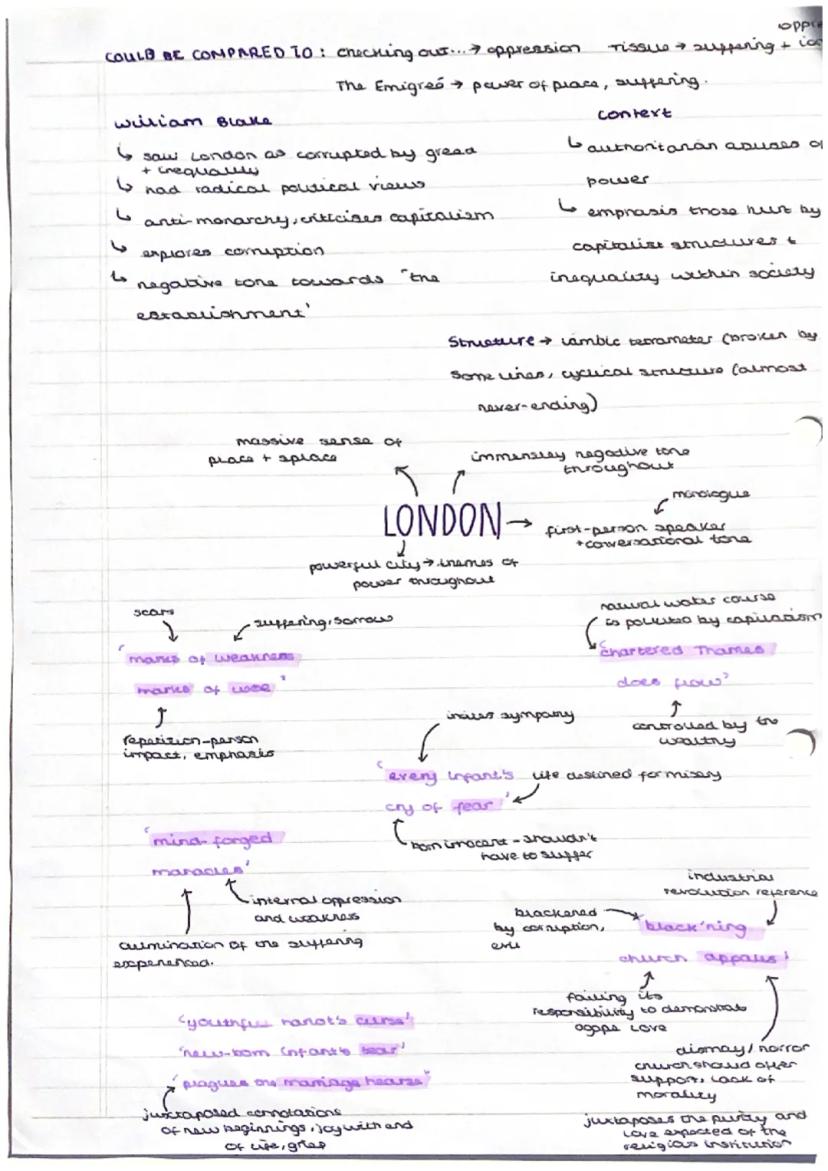 oppre
COULD BE COMPARED TO: checking out... → oppression Tissue → suffering +
The Emigreé → power of place, suffering.
William Blake
↳ saw London as corrupted by greed
+ inequality
↳ had radical political views
↳ anti-monarchy, criticises capitalism
↳ explores corruption
↳ negative tone towards 'the
establishment'
context
↳ authoritarian abuses of
power
↳ emphasis those hurt by
capitalist structures +
inequality within society
Structure → iambic tetrameter (broken by
some lines, cyclical structure (almost
never-ending)
massive sense of
place + space
immensley negative tone
throughout
LONDON
monologue
first-person speaker
+ conversational tone
powerful city → themes of
power throughout
scars
suffering, sorrow
'marks of weakness
marks of woe'
repetition-person
impact, emphasis
natural water course
is polluted by capitalism
'chartered Thames
does flow'
controlled by the
wealthy
incites sympathy
'every infant's
cry of fear'
life destined for misery
born innocent - shouldn't
have to suffer
'mind-forged
manacles'
internal oppression
and weakness
culmination of the suffering
experienced.
industrial
revolution reference
blackened
by corruption,
evil
'black'ning
church appalls'
failing its
responsibility to demonstrate
agape love
dismay / horror
church should offer
support, lack of
morality
juxtaposes the purity and
love expected of the
religious institution
'youthful harlot's curse'
'new-born infant's tear'
'plagues the marriage hearse'
juxtaposed connotations
of new beginnings, joy with end
of life, grief